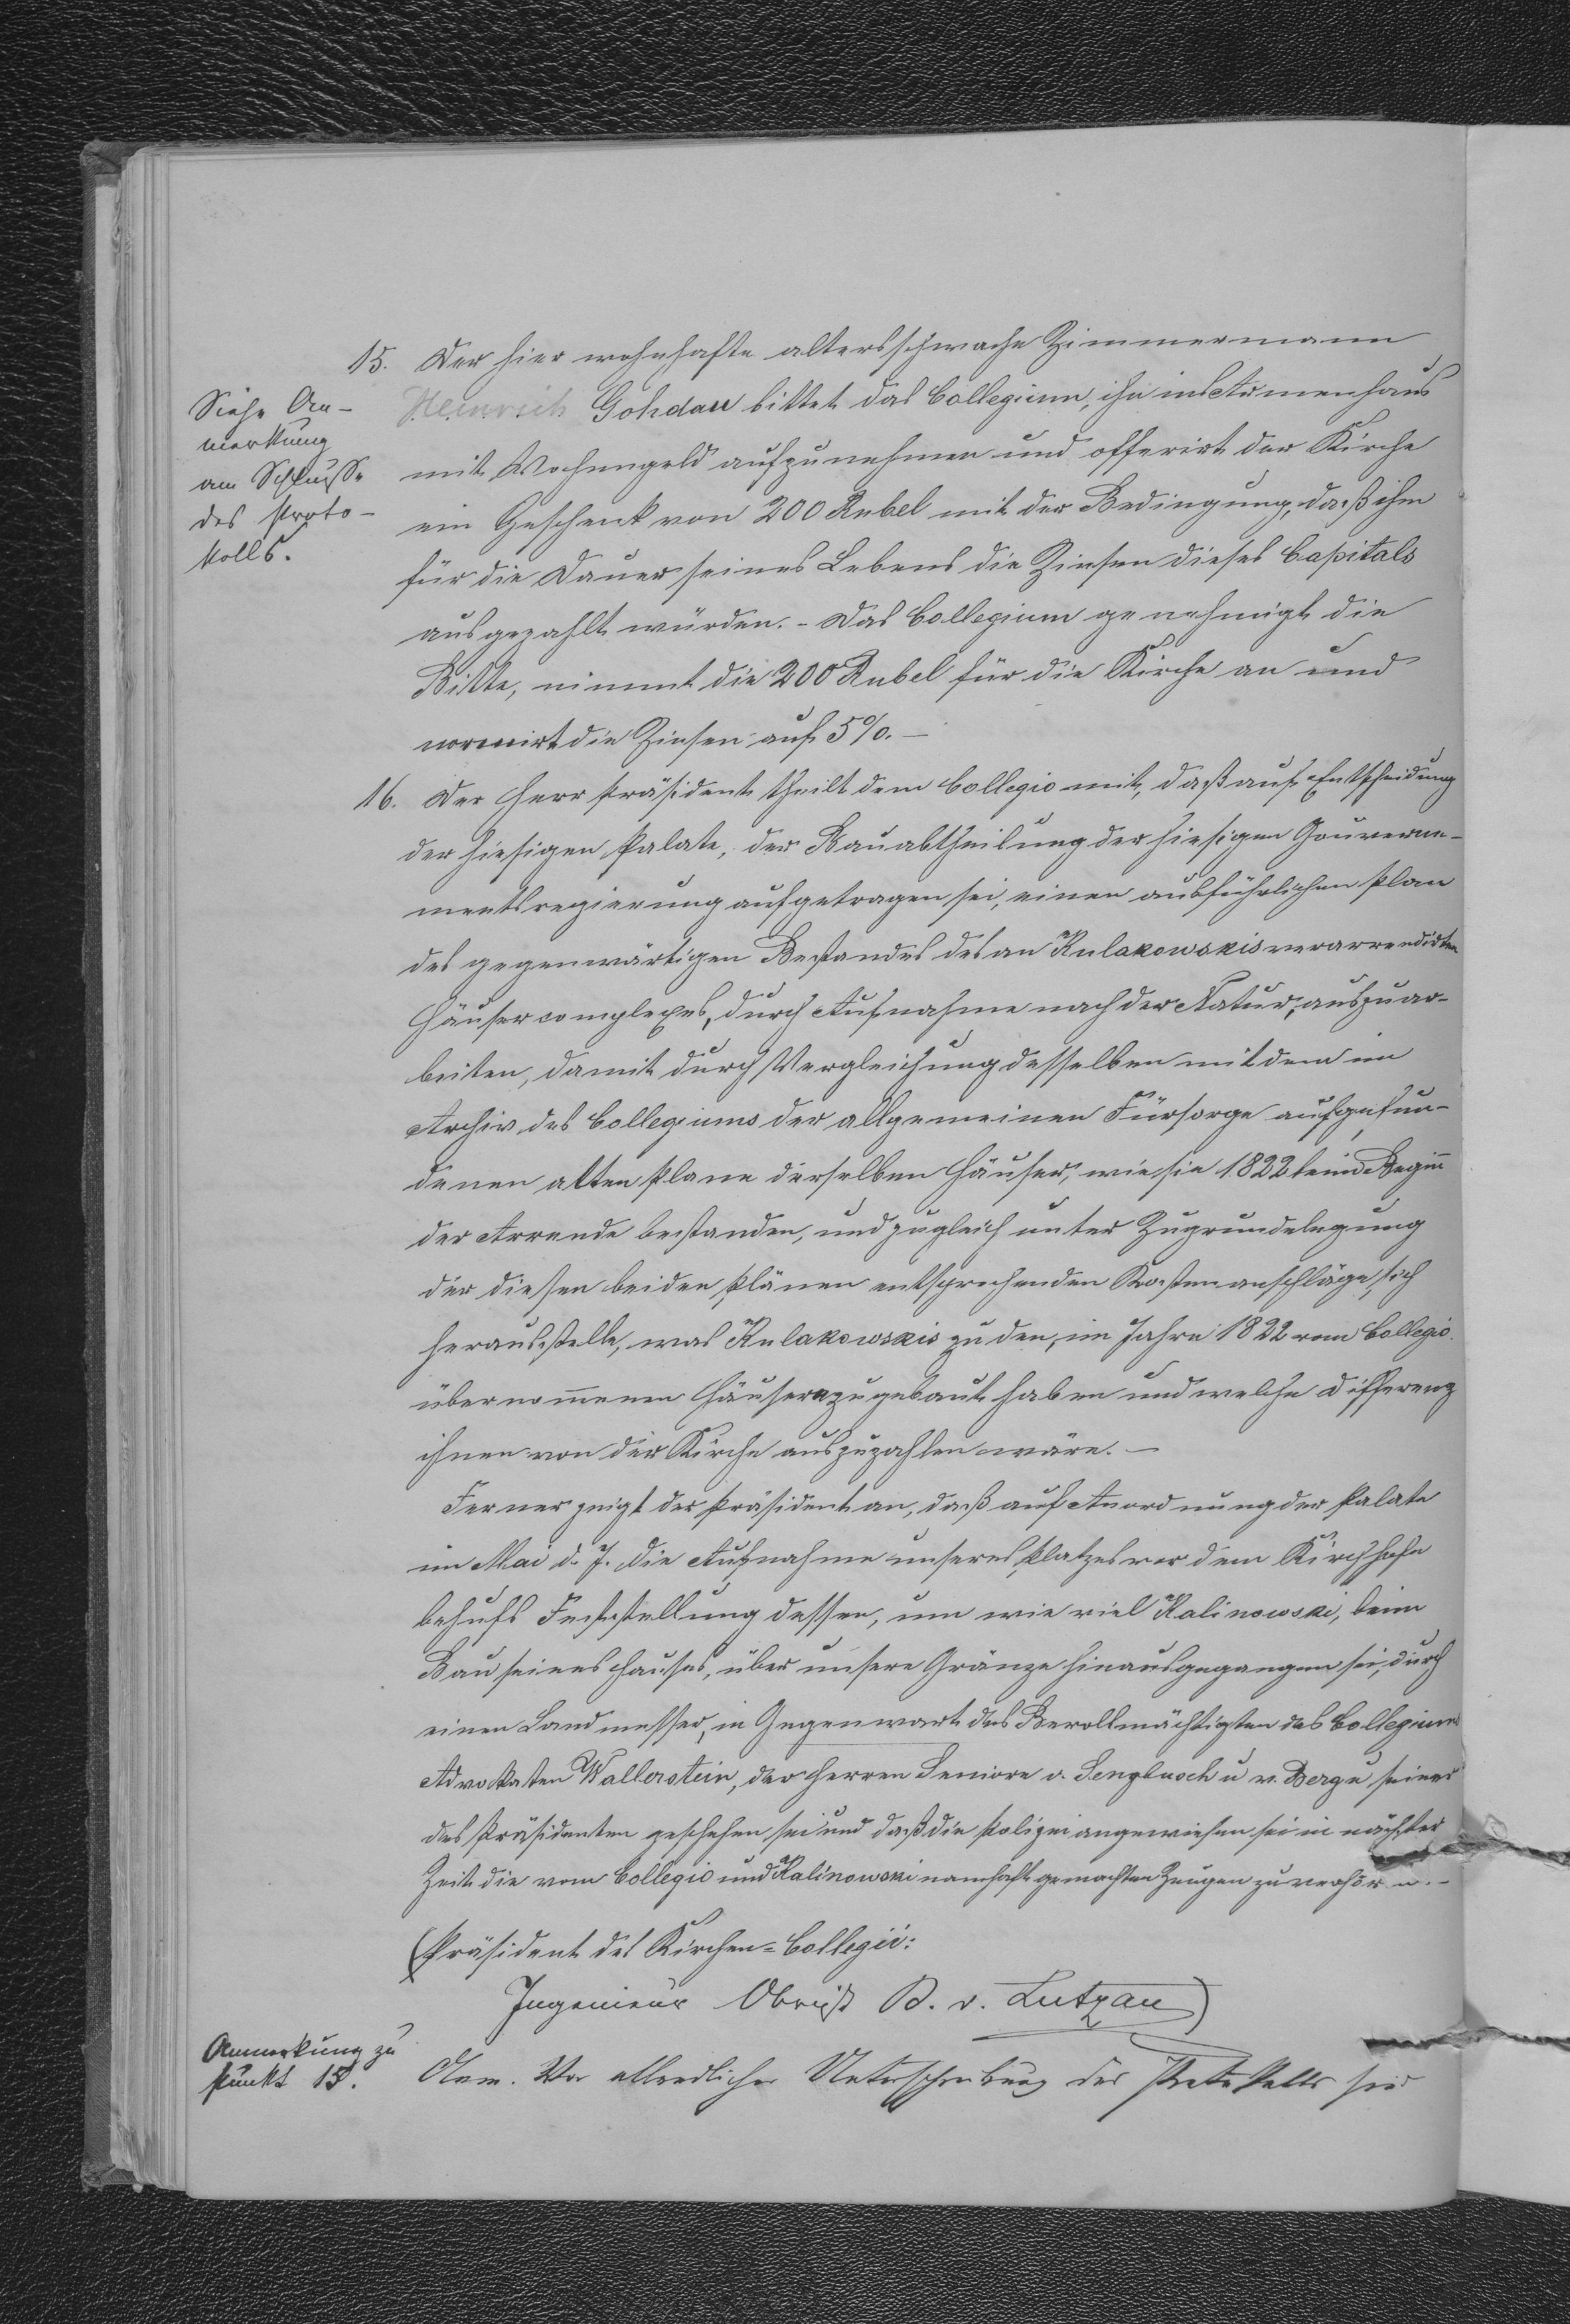 15. Der hier wohnhafte altersschwache Zimmermann
Siehe An-
merkung
am Schlusse
des Proto-
kolls.
Heinrich Gohdau bittet das Collegium, ihn ins Armenhaus
mit Wochengeld aufzunehmen und offerirt der Kirche
ein Geschenk von 200 Rubel mit der Bedingung, daß ihm
für die Dauer seines Lebens die Zinsen dieses Capitals
ausgezahlt würden. - Das Collegium genehmigt die
Bitte, nimmt die 200 Rubel für die Kirche an und
normirt die Zinsen auf 5%. -
16. Der Herr Präsident theilt dem Collegio mit, daß auf Entscheidung
der hiesigen Palate, der Bauabtheilung der hiesigen Gouverne-
mentsregierung aufgetragen sei, einen ausführlichen Plan
des gegenwärtigen Bestandes des an Kulakowskis verarrendirten
Häusercomplexes, durch Aufnahme nach der Natur, auszuar-
beiten, damit durch Vergleichung desselben mit dem im
Archiv des Collegiums der allgemeinen Fürsorge aufgefun-
denen alten Plane derselben Häuser, wie sie 1822 beim Beginn
der Arrende bestanden, und zugleich unter Zugrundelegung
der diesen beiden Plänen entsprechenden Kostenanschläge, sich
herausstelle, was Kulakowskis zu den, im Jahre 1822 vom Collegio
übernommenen Häusern zugebaut haben und welche Differenz
ihnen von der Kirche auszuzahlen wäre. -
Ferner zeigt der Präsident an, daß auf Anordnung der Palate
im Mai d. J. die Aufnahme unseres Platzes vor dem Kirchhofe
behufs Feststellung dessen, um wie viel Kalinowski, beim
Bau seines Hauses, über unsere Gränze hinausgegangen sei, durch
einen Landmesser, in Gegenwart des Bevollmächtigten des Collegiums
Advokaten Wallerstein, der Herren Seniore v. Sengbusch u v. Berg u seiner
des Präsidenten geschehen sei und daß die Polizei angewiesen sei in nächster
Zeit die vom Collegio und Kalinowski namhaft gemachten Zeugen zu verhören. -
(Präsident des Kirchen-Collegii:
Ingenieur Obrist B. v. Lutzau)
Anmerkung zu
Punkt 15.
Anm. Vor allendlicher Unterschreibung des Protokolls sind